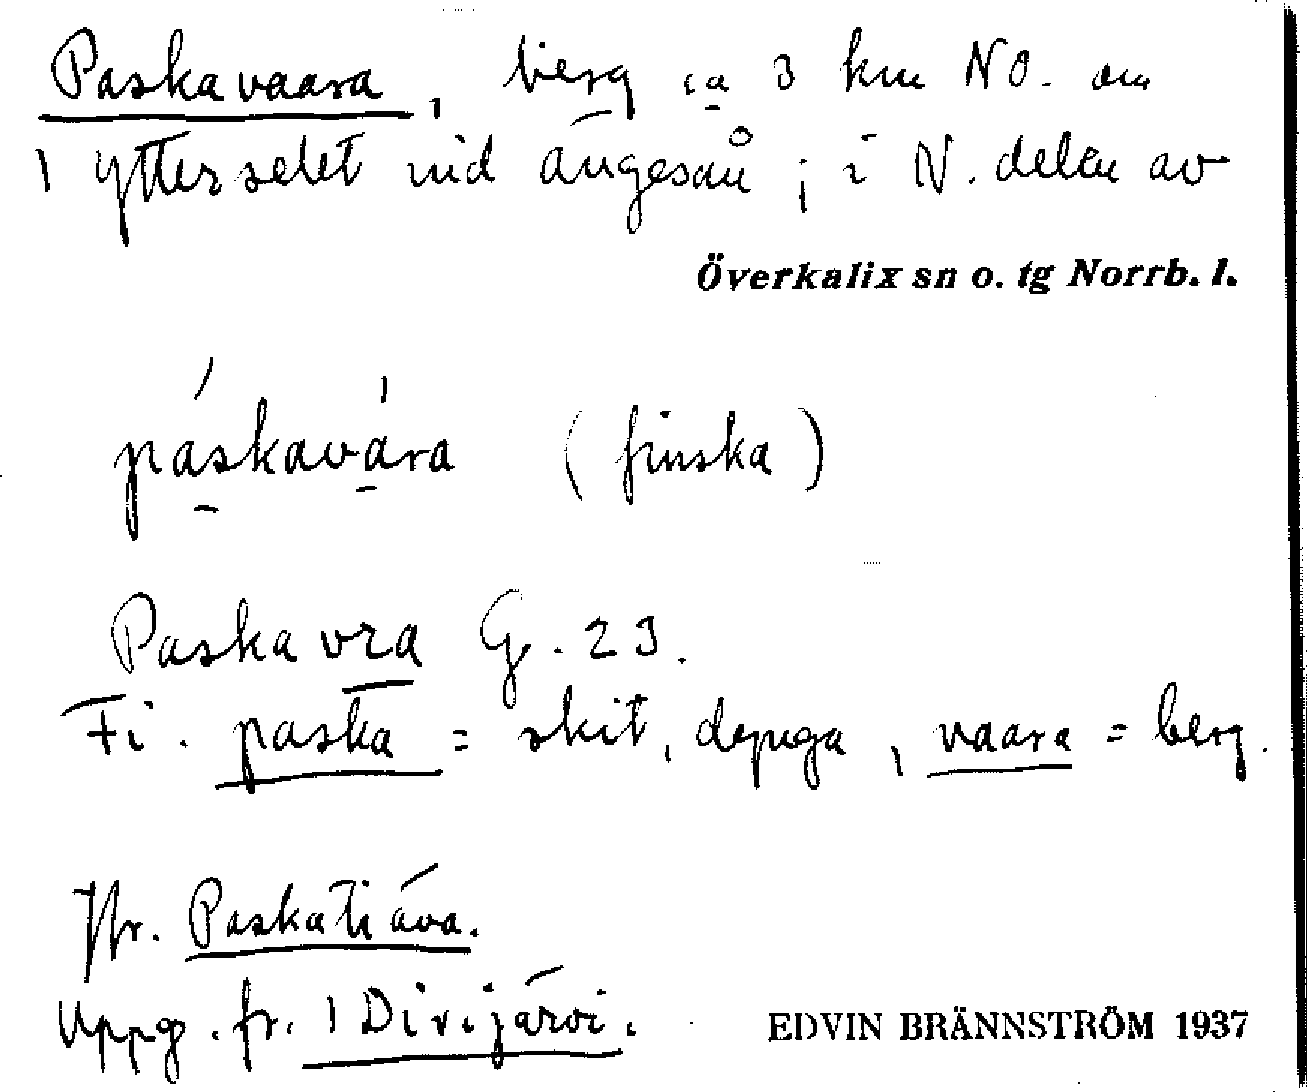 Paskavaara, berg ca 3 km NO. om
1 Ytterselet vid Ängesån; i N. delen av
Överkalix sn o. tg Norrb. l.
páskavára (finska)
Paskavra G. 23.
Fi. paska = skit, dynga, vaara = berg.
Jfr. Paskatiáva.
Uppg. fr. 1 Divijärvi.
EDVIN BRÄNNSTRÖM 1937